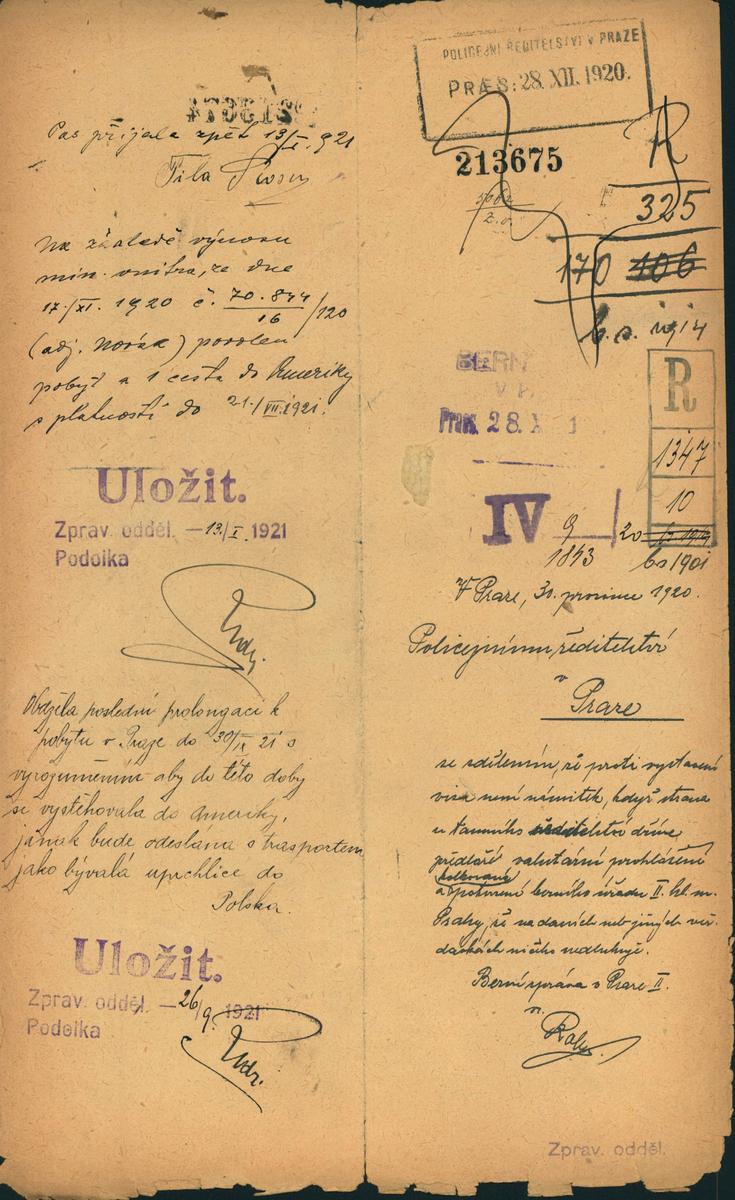 Pas přijala zpět 13/I. 921
Na základě výnosu
min. vnitra, ze dne
17./XI. 1920 č. 70.844/16 /120
(adj. Novák) povolen
pobyt a 1 cesta do Ameriky
s platností do 21./VII.1921.
Uložit.
Zprav. odděl. — 13./I. 1921
Podolka
Obdržela poslední prolongaci k
pobytu v Praze do 30/IX 21 s
vyrozuměním aby do této doby
se vystěhovala do Ameriky,
jinak bude odeslána s trasportem
jako bývalá uprchlice do
Polska.
Uložit.
Zprav. odděl. — 26/9. 1921
Podolka
POLICEJNÍ ŘEDITELSTVÍ V PRAZE
PRÆS: 28. XII. 1920.
213675
R
325
170 106
b.s. 1914
BERN
V P
Praes. 28. X 1
R
1347
10
bs 1901
IV 9/1843 /20
V Praze, 30. prosince 1920.
Policejnímu ředitelství
v
Praze
se sdělením, že proti vystavení
visa není námitek, když strana
u tamního ředitelství dříve
předloží valutární prohlášení
a kolkované potvrzení berního úřadu II. hl. m.
Prahy, že na daních neb jiných
dávkách ničeho nedluhuje.
Berní správa v Praze II.
Zprav. odděl.